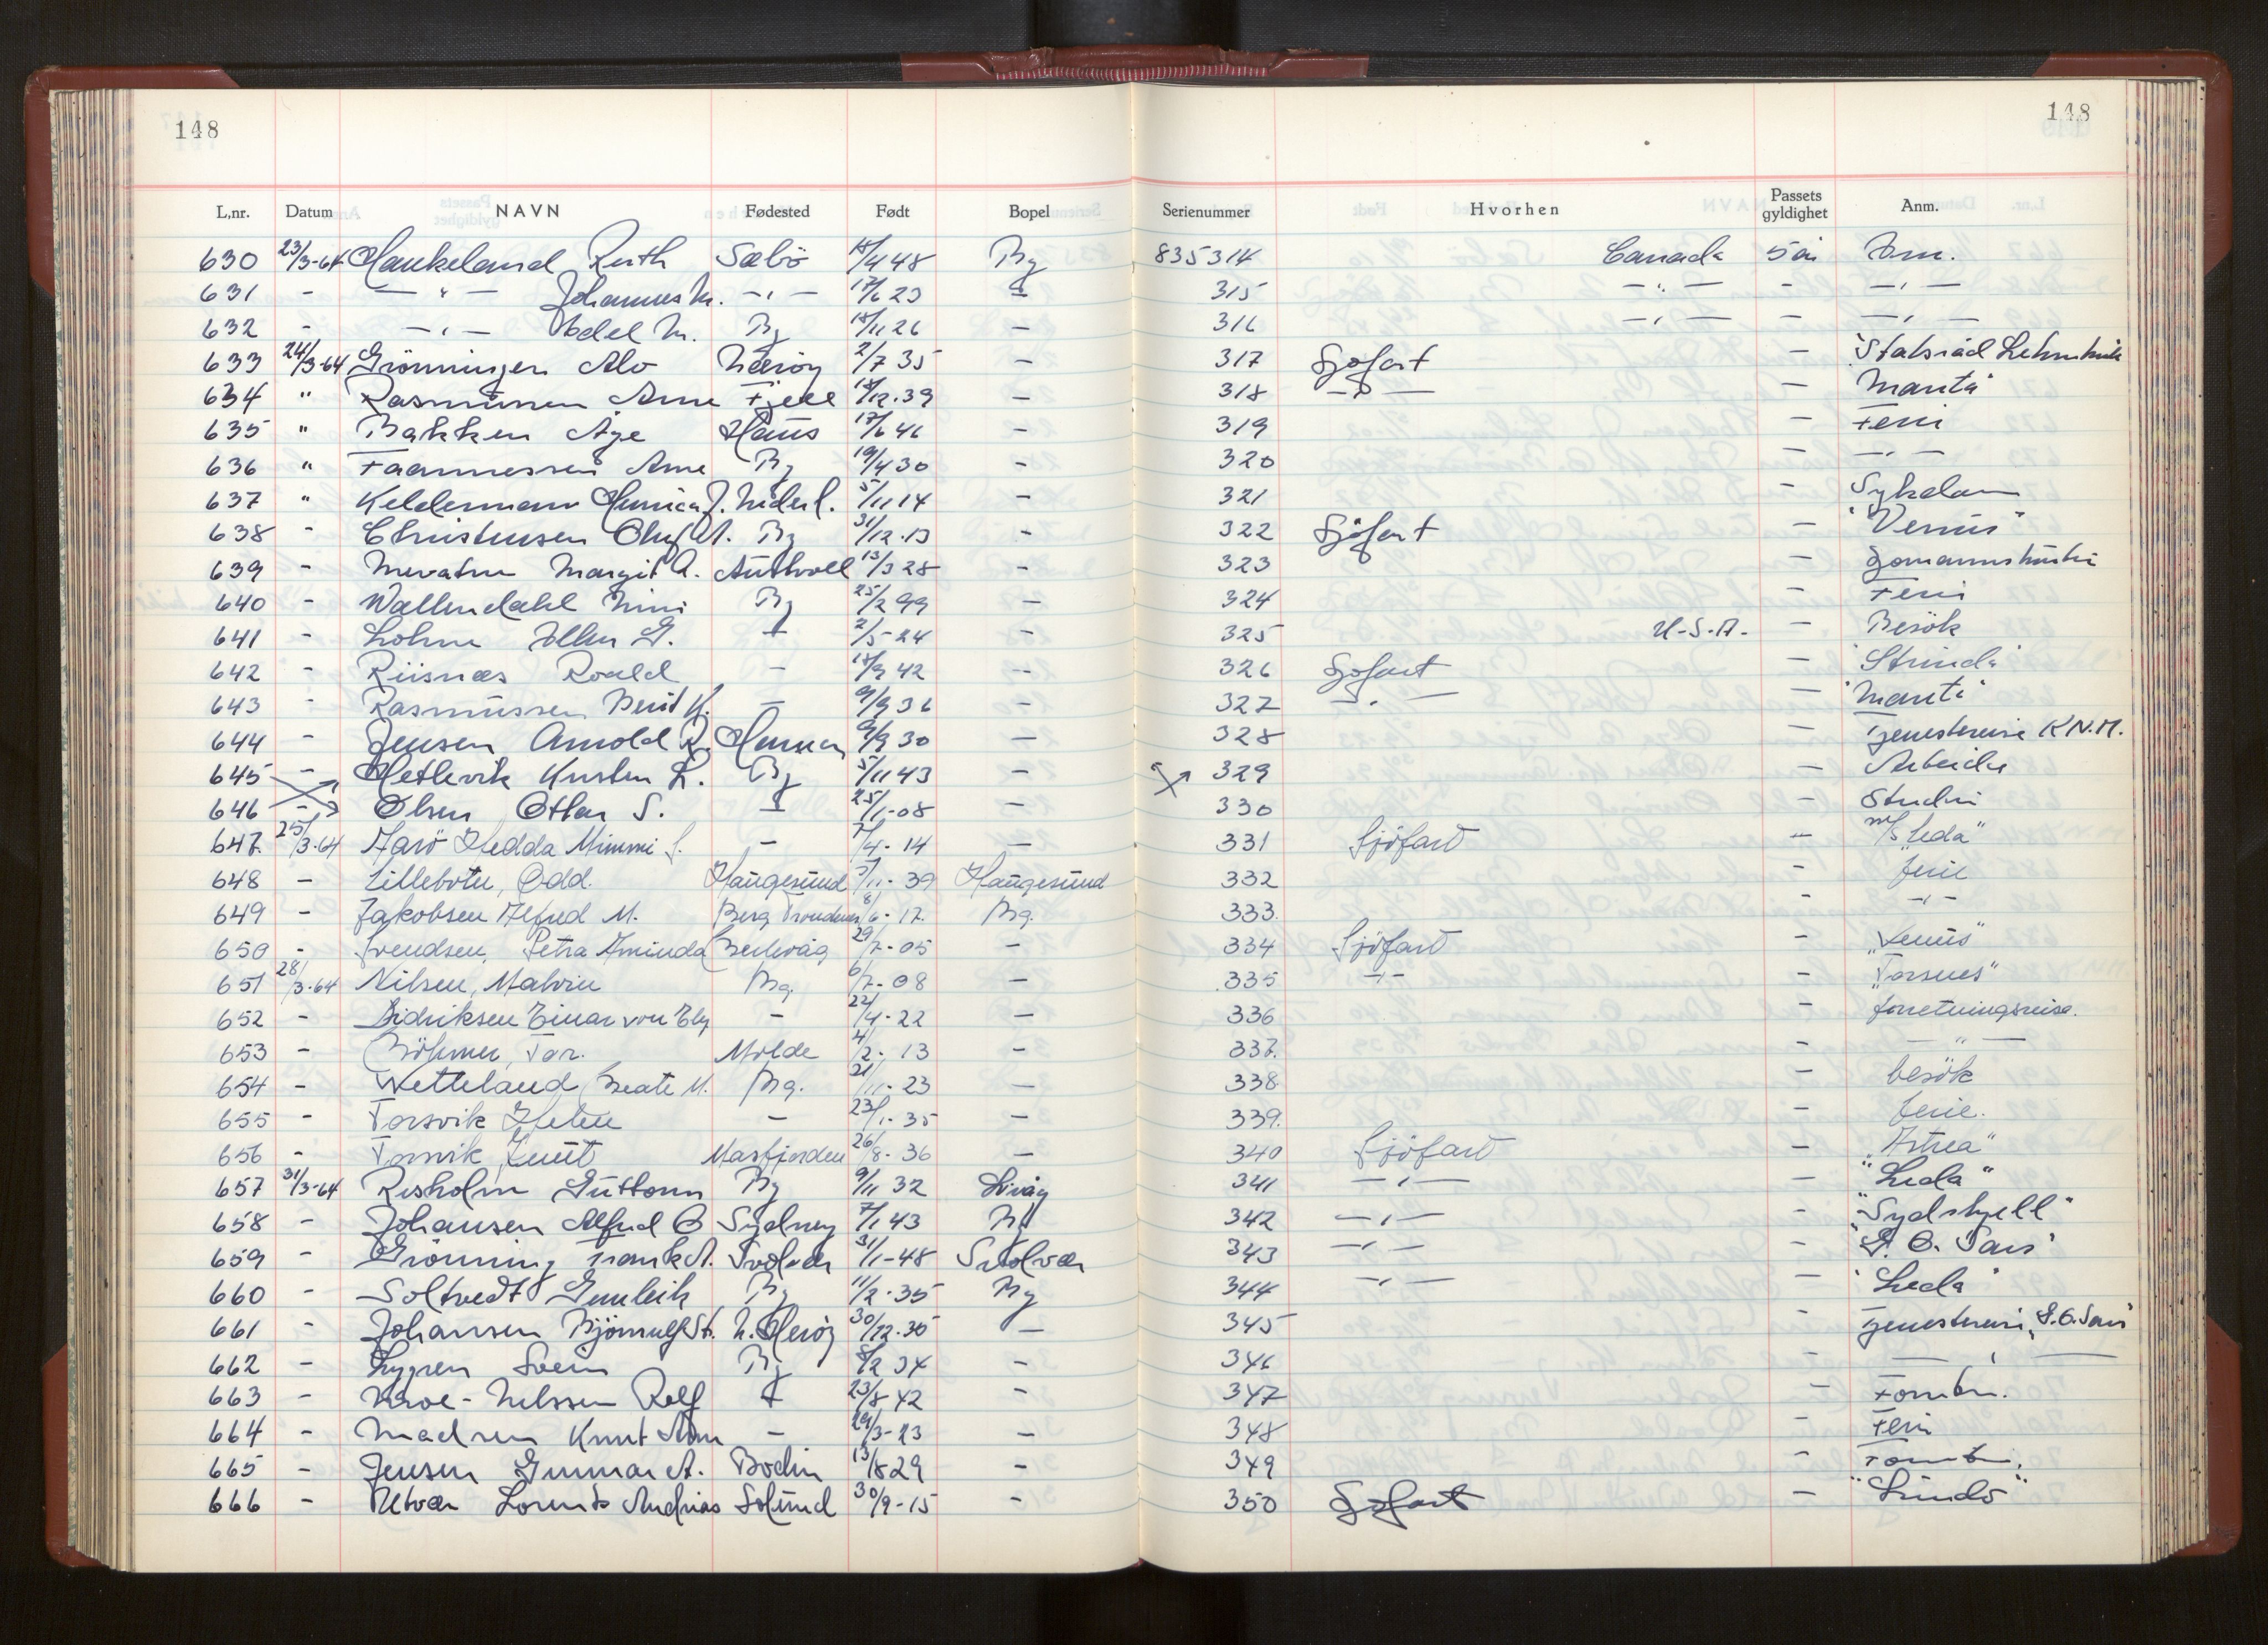 148 148
L,nr. Datum NAVN Fødested Født Bopel Serienummer Hvorhen Passets gyldighet Anm.
630 23/3-64 Haukeland Ruth Sæbö 18/4 48 Bg 835314 Canada 5 år
631 - — " — Johannes M. — " — 17/6 23 - 315 — " — - — " —
632 - — " — M. Bg 18/11 26 - 316 — " — - — " —
633 24/3-64 Grönningen Alv Nærøy 2/7 35 - 317 Sjøfart - "Statsråd Lehmkuhl
634 " Rasmussen Arne Fjell 18/12.39 - 318 — " — - "Manta"
635 " Bakken Åge Haus 17/6 46 - 319 - Ferie
636 " Faannessen Arne Bg 19/4 30 - 320 - — " —
637 " Keldermann J. Nederl. 5/11 14 - 321 - Sykdom
638 - Christensen Oluf A. Bg 31/12.13 - 322 Sjøfart - "Venus"
639 - Margit A. Austvoll 13/3 28 - 323 -
640 - Wallendahl Nini Bg 25/2 99 - 324 - Ferie
641 - Lohne G. - 2/5-24 - 325 U.S.A. - Besök
642 - Riisnæs Roald - 18/9 42 - 326 Sjøfart - "Strinda"
643 - Rasmussen Berit K. - 9/9 36 - 327 — " — - "Manta"
644 - Jensen Arnold R. 9/9 30 - 328 - Tjenestereise K.N.M.
645 - Hetlevik Kirsten L. Bg 5/11 43 - 329 - Arbeide
646 - Olsen Ottar S. - 25/1-08 - 330 - Studie
647. 25/3-64 Aarö Hedda Mimmi S. - 7/4-14 - 331 Sjöfart - m/s "Leda"
648 - Lillebotn, Odd. Haugesund 5/11-39 Haugesund 332 - ferie
649 - Jakobsen Alfred M. Berg Trondenes 8/6-17. Bg. 333. - -"-
650 - Svendsen, Petra Aminda 29/7-05 - 334 Sjöfart - "Venus"
651 28/3-64 Nilsen, Malvin Bg. 6/7-08 - 335 -"- - "Torsnes"
652 - Didriksen Einar von Ely - 22/4-22 - 336 - forretningsreise.
653 - Böhmer, Tor. Molde 4/2-13 - 337. - — " —
654 - Wetteland, Beate M. Bg. 21/11-23 - 338 - besök
655 - Torsvik Helen - 23/1-35 - 339. - ferie.
656 - Torsvik, Knut Masfjorden 26/8-36 - 340 Sjöfart - "Astrea"
657 31/3-64 Risholm Guttorm Bg 9/11 32 341 — " — - "Leda"
658 - Johansen Alfred O Sydney 7/1 43 Bg 342 — " — - "Sydskjell"
659 - Grönning Frank A. Svolvær 31/1-48 Svolvær 343 — " — - "G. O. Sars"
660 - Soltvedt Gunleik Bg 11/2.35 Bg 344 — " — - "Leda"
661 - Johansen Björnulf St. N. Herøy 30/12.30 - 345 - Tjenestereise "G.O. Sars"
662 - Lygren Svein Bg 8/2 34 - 346 - — " —
663 - Kroe-Nilssen Rolf - 23/8 42 - 347 - Forretn.
664 - Madsen Knut Arne - 29/3-23 - 348 - Ferie
665 - Jensen Gunnar A. Bodin 13/8 29 - 349 - Forretn.
666 - Utvær Lorents Andreas Solund 30/9-15 - 350 Sjøfart - "Lindö"